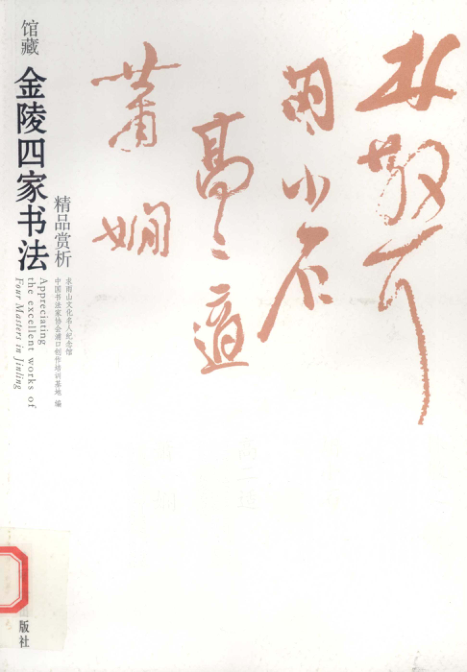 林散之
胡小石
高二适
萧娴
馆藏
金陵四家书法
精品赏析
Appreciating
the excellent works of
Four Masters in Jinling
求雨山文化名人纪念馆
中国书法家协会浦口创作培训基地 编
版社